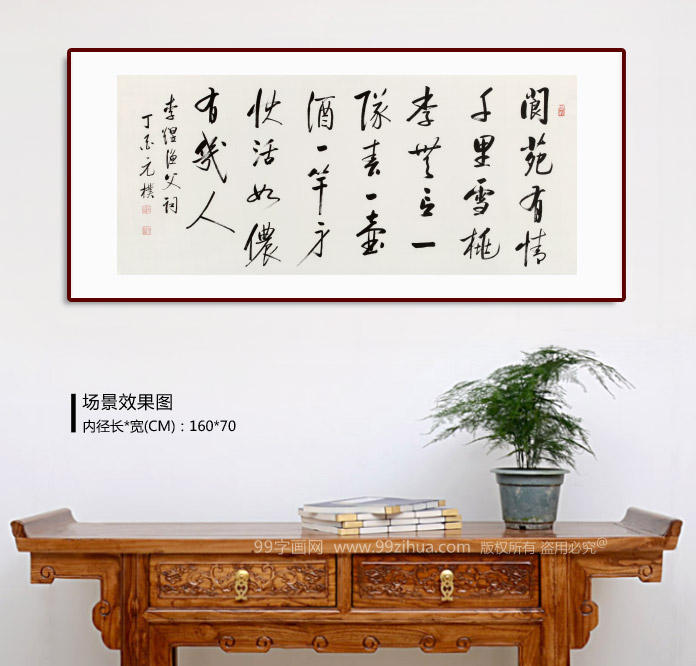 閬苑有情
千里雪桃
李無言一
隊春一壺
酒一竿身
快活如儂
有幾人
李煜漁父詞
丁酉元樸
场景效果图
内径长*宽(CM)：160*70
99字画网 www.99zihua.com 版权所有 盗用必究@